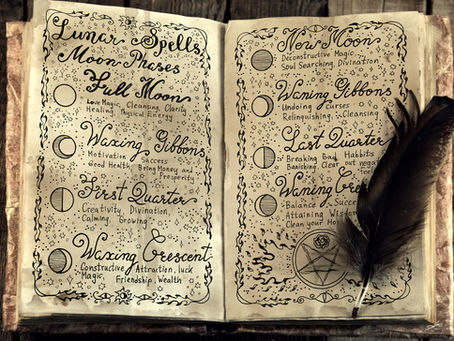 Lunar Spells
Moon Phases
Full Moon
Love Magic, Cleansing, Clarity
Healing, Physical Energy
Waxing Gibbons
Motivation Success
Good Health Bring Money and
Prosperity
First Quarter
Creativity, Divination,
Calming, Growing
Waxing Crescent
Constructive Attraction, luck
Magic, Friendship, Wealth
New Moon
Deconstructive Magic
Soul Searching, Divination
Waning Gibbons
Undoing Curses
Relinquishing, Cleansing
Last Quarter
Breaking Bad Habits
Banishing, Clear out nega
Waning Cre
Balance Success
Attaining Wisdom
Clean your Ho